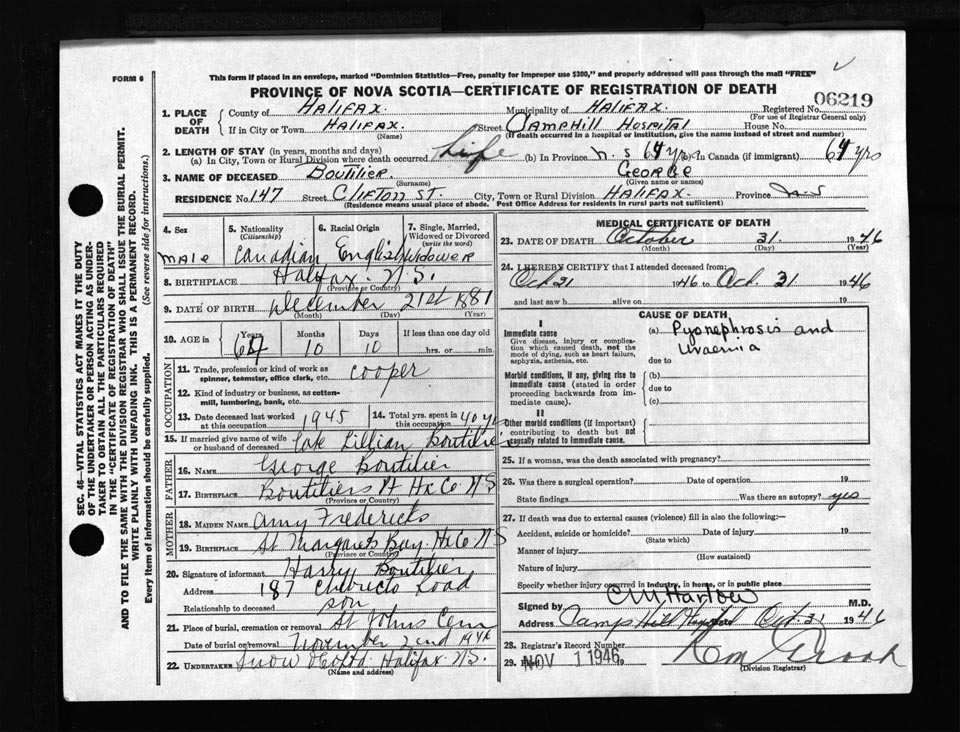 FORM 6
This form if placed in an envelope, marked "Dominion Statistics—Free, penalty for improper use $300," and properly addressed will pass through the mail "FREE"
PROVINCE OF NOVA SCOTIA—CERTIFICATE OF REGISTRATION OF DEATH
06219
1. PLACE OF DEATH County of HALIFAX. Municipality of HALIFAX. Registered No.
(For use of Registrar General only)
If in City or Town HALIFAX. Street CAMPHILL HOSPITAL House No.
(Name) (If death occurred in a hospital or institution, give the name instead of street and number)
2. LENGTH OF STAY (in years, months and days)
(a) In City, Town or Rural Division where death occurred Life (b) In Province N.S 64 yrs (c) In Canada (if immigrant) 64 yrs
3. NAME OF DECEASED BOUTILIER. GEORGE
(Surname) (Given name or names)
RESIDENCE No. 147 Street CLIFTON ST. City, Town or Rural Division HALIFAX. Province N.S
(Residence means usual place of abode. Post Office Address for residents in rural parts not sufficient)
4. Sex male
5. Nationality (Citizenship) Canadian
6. Racial Origin English
7. Single, Married, Widowed or Divorced (write the word) WIDOWER
8. BIRTHPLACE Halifax. N.S.
(Province or Country)
9. DATE OF BIRTH December 21st 1881
(Month) (Day) (Year)
10. AGE in Years 64 Months 10 Days 10 If less than one day old
hrs. or min.
OCCUPATION
11. Trade, profession or kind of work as spinner, teamster, office clerk, etc. cooper
12. Kind of industry or business, as cotton-mill, lumbering, bank, etc.
13. Date deceased last worked at this occupation 1945
14. Total yrs. spent in this occupation 40 yrs
15. If married give name of wife or husband of deceased Late Lillian Boutilier
FATHER
16. NAME George Boutilier
17. BIRTHPLACE Boutiliers Pt Hx Co N S
(Province or Country)
MOTHER
18. MAIDEN NAME Amy Fredericks
19. BIRTHPLACE St Margarets Bay. Hx Co N S
(Province or Country)
20. Signature of informant Harry Boutilier
Address 187 Chebucto Road
Relationship to deceased son
21. Place of burial, cremation or removal St Johns Cem
Date of burial or removal November 2nd 1946
22. UNDERTAKER Snow Halifax N.S.
(Name and address)
MEDICAL CERTIFICATE OF DEATH
23. DATE OF DEATH October 31. 1946
(Month) (Day)
24. I HEREBY CERTIFY that I attended deceased from:
Oct 21 1946 to Oct. 31 1946
and last saw h alive on 19
CAUSE OF DEATH
I
Immediate cause
Give disease, injury or complication which caused death, not the mode of dying, such as heart failure, asphyxia, asthenia, etc.
(a) Pyonephrosis and
uraemia
due to
Morbid conditions, if any, giving rise to immediate cause (stated in order proceeding backwards from immediate cause).
(b)
due to
(c)
II
Other morbid conditions (if important) contributing to death but not causally related to immediate cause.
25. If a woman, was the death associated with pregnancy?
26. Was there a surgical operation? Date of operation 19
State findings Was there an autopsy? yes
27. If death was due to external causes (violence) fill in also the following:—
Accident, suicide or homicide? Date of injury 19
(State which)
Manner of injury
(How sustained)
Nature of injury
Specify whether injury occurred in industry, in home, or in public place
Signed by C M Harlow M.D.
Address Camp Hill Hospital Oct. 31 1946
28. Registrar's Record Number
29. NOV 1 1946
(Division Registrar)
SEC. 46—VITAL STATISTICS ACT MAKES IT THE DUTY
OF THE UNDERTAKER OR PERSON ACTING AS UNDER-
TAKER TO OBTAIN ALL THE PARTICULARS REQUIRED
IN THE "CERTIFICATE OF REGISTRATION OF DEATH"
AND TO FILE THE SAME WITH THE DIVISION REGISTRAR WHO SHALL ISSUE THE BURIAL PERMIT.
WRITE PLAINLY WITH UNFADING INK. THIS IS A PERMANENT RECORD.
Every item of information should be carefully supplied. (See reverse side for instructions.)